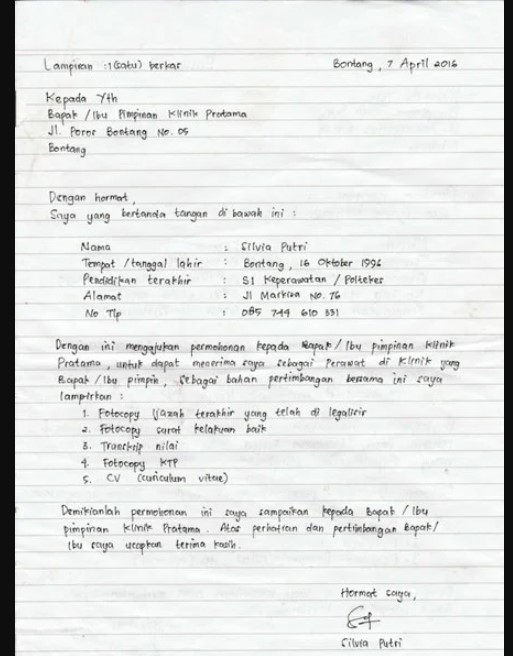 Lampiran : 1 (satu) berkas
Bontang, 7 April 2016
Kepada Yth
Bapak / Ibu Pimpinan Klinik Pratama
Jl. Poros Bontang No. 05
Bontang
Dengan hormat,
Saya yang bertanda tangan di bawah ini :
Nama : Silvia Putri
Tempat / tanggal lahir : Bontang, 16 Oktober 1996
Pendidikan terakhir : S1 Keperawatan / Poltekes
Alamat : Jl Markisa No. 76
No Tlp : 085 744 610 331
Dengan ini mengajukan permohonan kepada Bapak / Ibu pimpinan Klinik
Pratama, untuk dapat menerima saya sebagai Perawat di Klinik yang
Bapak / Ibu pimpin, sebagai bahan pertimbangan bersama ini saya
lampirkan :
1. Fotocopy Ijazah terakhir yang telah di legalisir
2. Fotocopy surat kelakuan baik
3. Transkrip nilai
4. Fotocopy KTP
5. CV (curiculum vitae)
Demikianlah permohonan ini saya sampaikan kepada Bapak / Ibu
pimpinan Klinik Pratama. Atas perhatian dan pertimbangan Bapak/
Ibu saya ucapkan terima kasih.
Hormat saya,
Silvia Putri